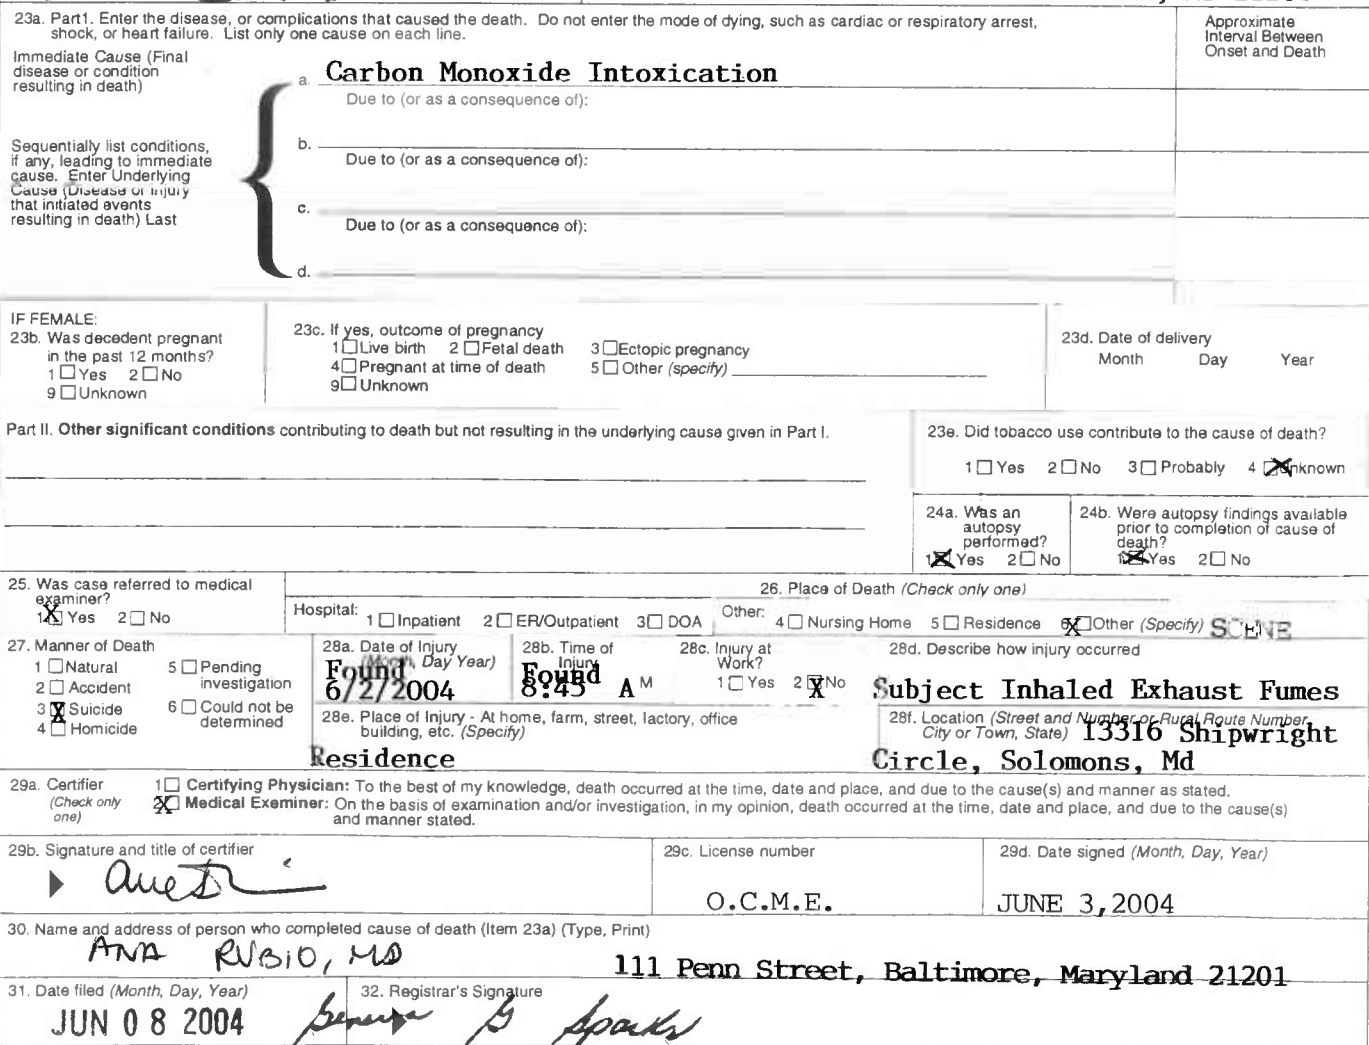 23a. Part1. Enter the disease, or complications that caused the death. Do not enter the mode of dying, such as cardiac or respiratory arrest,
shock, or heart failure. List only one cause on each line.
Approximate
Interval Between
Onset and Death
Immediate Cause (Final
disease or condition
resulting in death)
a. Carbon Monoxide Intoxication
Due to (or as a consequence of):
Sequentially list conditions,
if any, leading to immediate
cause. Enter Underlying
Cause (Disease or injury
that initiated events
resulting in death) Last
b.
Due to (or as a consequence of):
c.
Due to (or as a consequence of):
d.
IF FEMALE:
23b. Was decedent pregnant
in the past 12 months?
1 ☐ Yes 2 ☐ No
9 ☐ Unknown
23c. If yes, outcome of pregnancy
1 ☐ Live birth 2 ☐ Fetal death 3 ☐ Ectopic pregnancy
4 ☐ Pregnant at time of death 5 ☐ Other (specify)
9 ☐ Unknown
23d. Date of delivery
Month Day Year
Part II. Other significant conditions contributing to death but not resulting in the underlying cause given in Part I.
23e. Did tobacco use contribute to the cause of death?
1 ☐ Yes 2 ☐ No 3 ☐ Probably 4 ☒ Unknown
24a. Was an
autopsy
performed?
1 ☒ Yes 2 ☐ No
24b. Were autopsy findings available
prior to completion of cause of
death?
1 ☒ Yes 2 ☐ No
25. Was case referred to medical
examiner?
1 ☒ Yes 2 ☐ No
26. Place of Death (Check only one)
Hospital: 1 ☐ Inpatient 2 ☐ ER/Outpatient 3 ☐ DOA Other: 4 ☐ Nursing Home 5 ☐ Residence 6 ☒ Other (Specify) SCENE
27. Manner of Death
1 ☐ Natural 5 ☐ Pending
investigation
2 ☐ Accident
3 ☒ Suicide 6 ☐ Could not be
determined
4 ☐ Homicide
28a. Date of Injury
(Month, Day Year)
Found
6/2/2004
28b. Time of
Injury
Found
8:45 A M
28c. Injury at
Work?
1 ☐ Yes 2 ☒ No
28d. Describe how injury occurred
Subject Inhaled Exhaust Fumes
28e. Place of Injury - At home, farm, street, factory, office
building, etc. (Specify)
Residence
28f. Location (Street and Number or Rural Route Number,
City or Town, State) 13316 Shipwright
Circle, Solomons, Md
29a. Certifier
(Check only
one)
1 ☐ Certifying Physician: To the best of my knowledge, death occurred at the time, date and place, and due to the cause(s) and manner as stated.
2 ☒ Medical Examiner: On the basis of examination and/or investigation, in my opinion, death occurred at the time, date and place, and due to the cause(s)
and manner stated.
29b. Signature and title of certifier
29c. License number
O.C.M.E.
29d. Date signed (Month, Day, Year)
JUNE 3,2004
30. Name and address of person who completed cause of death (Item 23a) (Type, Print)
ANA RUBIO, MD
111 Penn Street, Baltimore, Maryland 21201
31. Date filed (Month, Day, Year)
JUN 08 2004
32. Registrar's Signature
Sparks